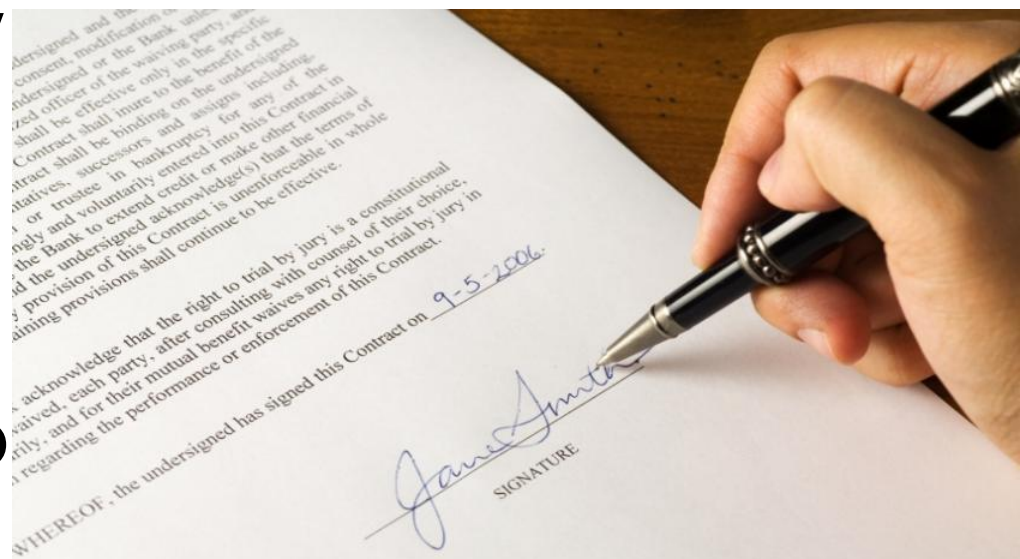 dersigned and the
consent, modification of
ndersigned or the Bank unless
zed officer of the waiving party, and
shall be effective only in the specific
Contract shall inure to the benefit of the
ntract shall be binding on the undersigned
ntatives, successors and assigns including,
or trustee in bankruptcy for any of the
ngly and voluntarily entered into this Contract in
the Bank to extend credit or make other financial
d the undersigned acknowledge(s) that the terms of
y provision of this Contract is unenforceable in whole
aining provisions shall continue to be effective.
acknowledge that the right to trial by jury is a constitutional
waived, each party, after consulting with counsel of their choice,
rily, and for their mutual benefit waives any right to trial by jury in
regarding the performance or enforcement of this Contract.
WHEREOF, the undersigned has signed this Contract on 9-5-2006.
Jane Smith
SIGNATURE